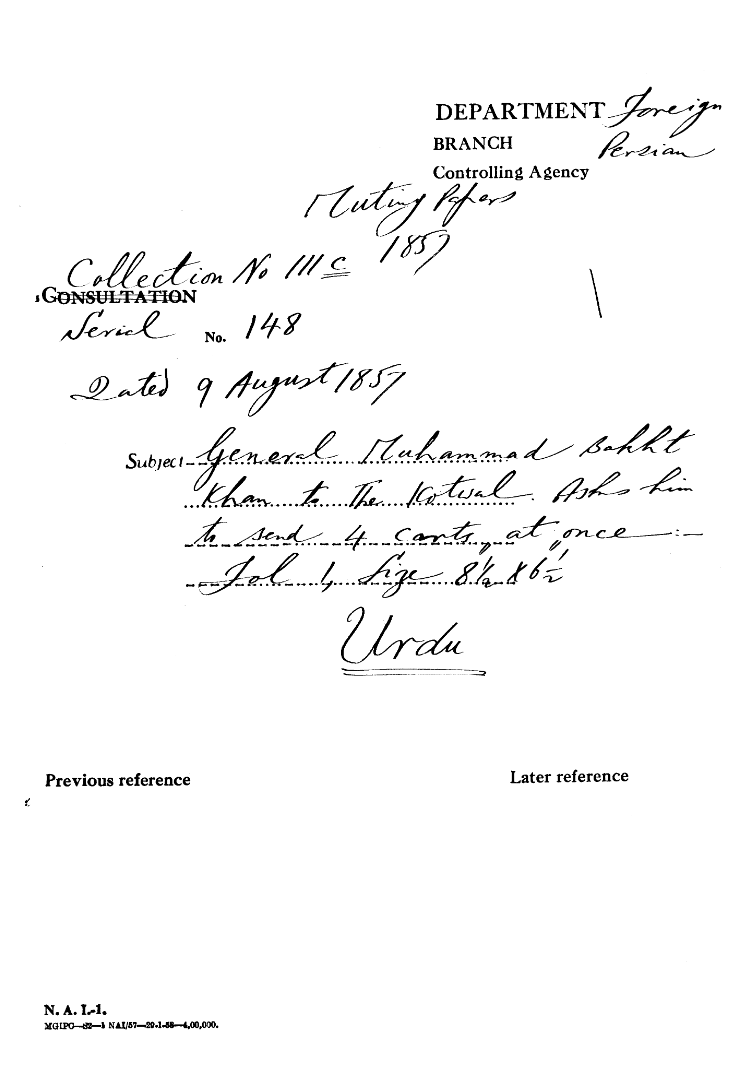 DEPARTMENT Foreign
BRANCH Persian
Controlling Agency
Mutiny Papers
1857
Collection No III C
CONSULTATION
Serial No. 148
Dated 9 August 1857
Subject General Muhammad Bakht
Khan to the Kotwal. Asks him
to send 4 carts, at once :-
Fol 1, Size 8½ x 6½
Urdu
Previous reference
Later reference
N. A. I.-1.
MGIPC—82—1 NAI/57—29-1-58—4,00,000.